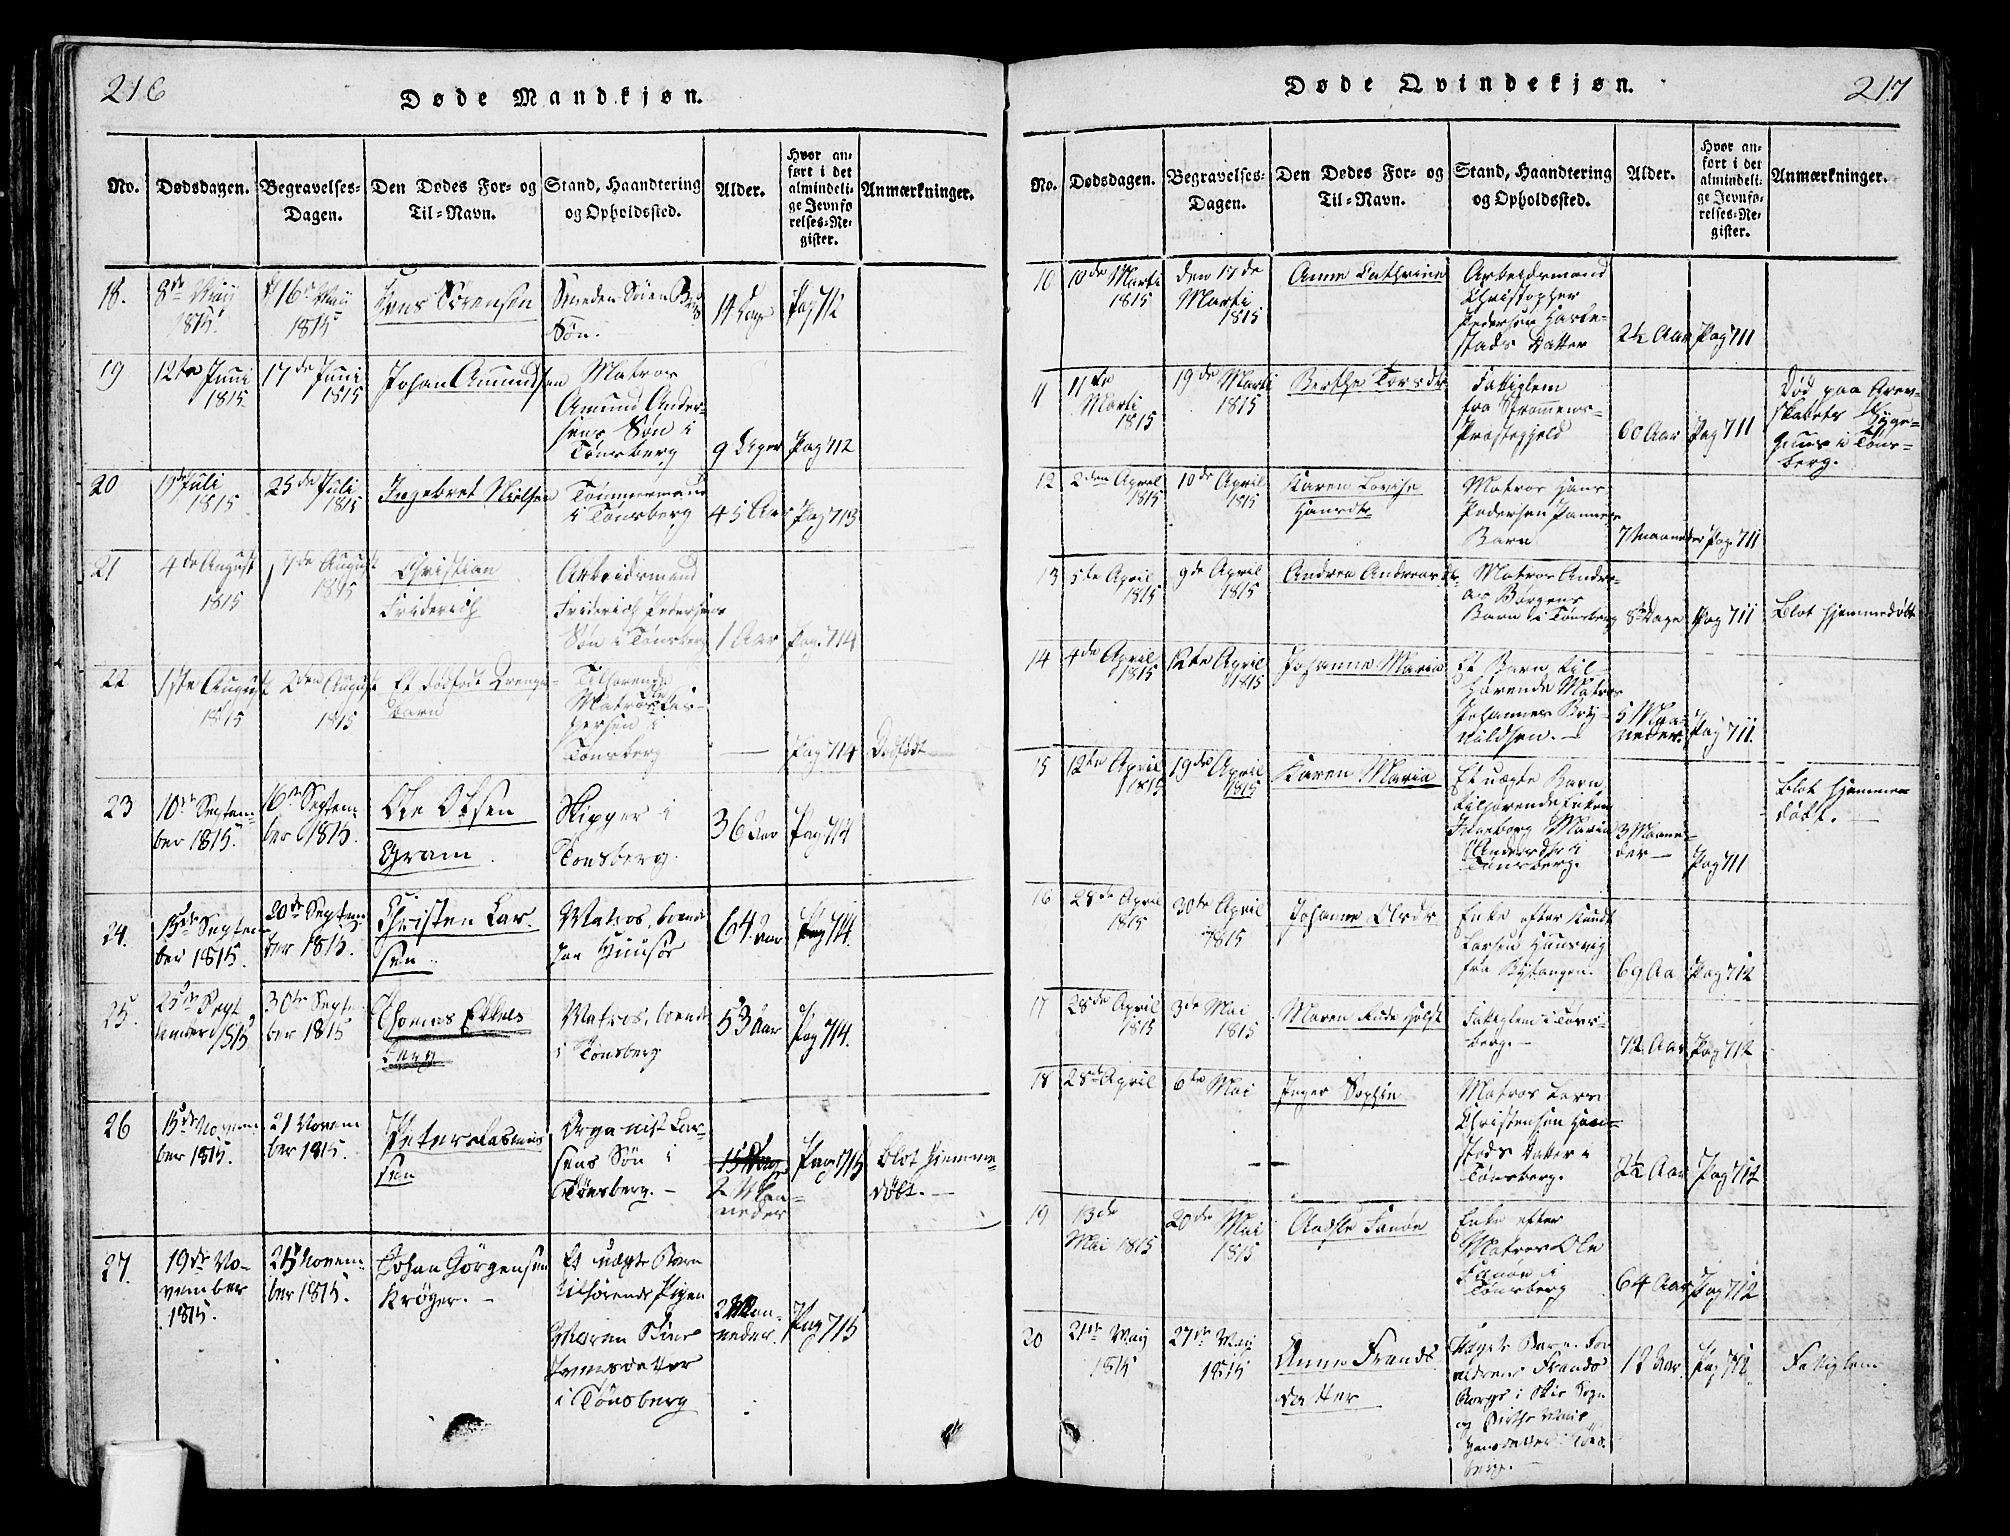 216
Døde Mandkjøn.
No.
Dødsdagen.
Begravelses-
Dagen.
Den Dødes For- og
Til-Navn.
Stand, Haandtering
og Opholdssted.
Alder.
Hvor an-
ført i det
almindeli-
ge Jevnfø-
relses-Re-
gister.
Anmærkninger.
18.
8de Maij
1815
16 Maij
1815
Sørensen
Smeden Søren
Søn.
14 Dage
Pag 712
19
12te Juni
1815
17de Juni
1815
Johan Amundsen
Matros
Amund Ander-
sens Søn i
Tønsberg
9 Uger
Pag 712
20
Juli
1815
25de Juli
1815
Ingebret Nielsen
Tømmermand
i Tønsberg
45 Aar
Pag 713
21
4de August
1815
7de August
1815
Christian
Friderich
Arbeidsmand
Friderich Pedersens
Søn i Tønsberg
1 Aar
Pag. 714
22
1ste August
1815
2den August
1815
Et dødfødt Drenge-
barn
Tilhørende
Matros Ole
persen i
Tønsberg
Pag 714
Dødfødt
23
10de Septem-
ber 1815.
16de Septem-
ber 1815.
Ole Olsen
Gram.
Skipper i
Tønsberg.
36 Aar
Pag 714
24.
15de Septem-
ber 1815.
20de Septem
ber 1815.
Christen Lar-
sen.
Matros, boende
64 Aar
Pag 714.
25.
25de Sept
ember 1815
30te Septem-
ber 1815
Thomas
Berg
Matros, boende
i Tønsberg
53 Aar
Pag 714.
26
15de Novem
ber 1815.
21 Novem
ber 1815.
Peter Rasmus
sen
Organist Lar-
sens Søn i
Tønsberg.
2 Maa-
neder
Pag 715
Blot hjemme-
døbt.
27.
19de No-
vember
1815.
25 Novem-
ber 1815.
Johan Jørgensen
Krøyer.
Et uægte Barn
tilhørende Pigen
Maren
Jensdatter
i Tønsberg
2 Maa-
neder.
Pag 715
217
Døde Qvindekjøn.
No.
Dødsdagen.
Begravelses-
Dagen.
Den Dødes For- og
Til-Navn.
Stand, Haandtering
og Opholdssted.
Alder.
Hvor an-
ført i det
almindeli-
ge Jevnfø-
relses-Re-
gister.
Anmærkninger.
10
10de Marti
1815
den 17de
Marti
1815
Anne Cathrine
Arbeidsmand
Christopher
Pedersen Harke-
stads Datter
2½ Aar
Pag 711
11
11te
Marti
1815
19de Marti
1815
Berthe Torsdtr
Fattiglem
fra Strømmens-
Præstegjeld
60 Aar
Pag 711
Død paa Grev-
skabets Syge-
huus i Tøns-
berg.
12
2den April
1815
10de April
1815
Karen Lovise
Hansdtr
Matros Hans
Pedersen
Barn
7 Maaneder
Pag. 711
13
5te April
1815
9de April
1815
Andrea Andreasdtr
Matros Andre-
as Børgens
Barn i Tønsberg
8 Dage
Pag 711
Blot hjemmedøbt
14
4de April
1815
12te April
1815
Johanne Maria
Et Barn til-
hørende Matros
Johannes Bry-
nildsen.
5 Maa-
neder.
Pag 711.
15
12te April
1815
19de April
1815
Karen Maria
Et uægte Barn,
tilhørende Enken
Ingeborg Maria
Andersdtr i
Tønsberg.
3 Maane-
der
Pag 711
Blot hjemme-
døbt.
16
28de April
1815
30te April
1815
Johanne Olsdtr
Enke efter Knudt
Larsen
fra Bytangen.
69 Aa
Pag 712
17
28de April
1815
3de Mai
1815
Maren
Fattiglem i Tøns-
berg.
72 Aar
Pag 712
18
28de April
6te Mai
Inger Sophie
Matros Lars
Christensen
stads Datter i
Tønsberg.
2½ Aar
Pag 712
19
13de
Mai 1815
20de Mai
1815
Fanøe
Enke efter
Matros Ole
Fanøe i
Tønsberg
64 Aar
Pag 712
20
21de Maij
1815
27de Maij
1815
Anne Frands
datter
Barn. For
ældrene Frands
i Sogn
og
Hansdatter Tøns-
berg.
12 Aar.
Pag 712.
Fattiglem